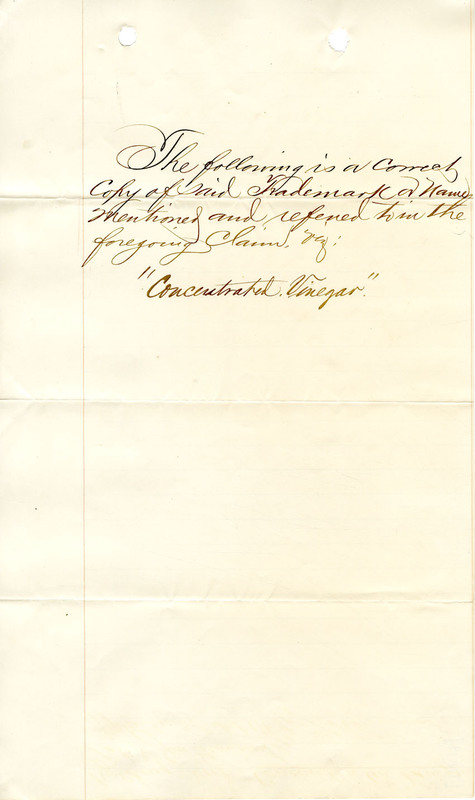 The following is a Correct
Copy of said Trademark or Name
mentioned and refered to in the
foregoing Claim, viz:
"Concentrated Vinegar."